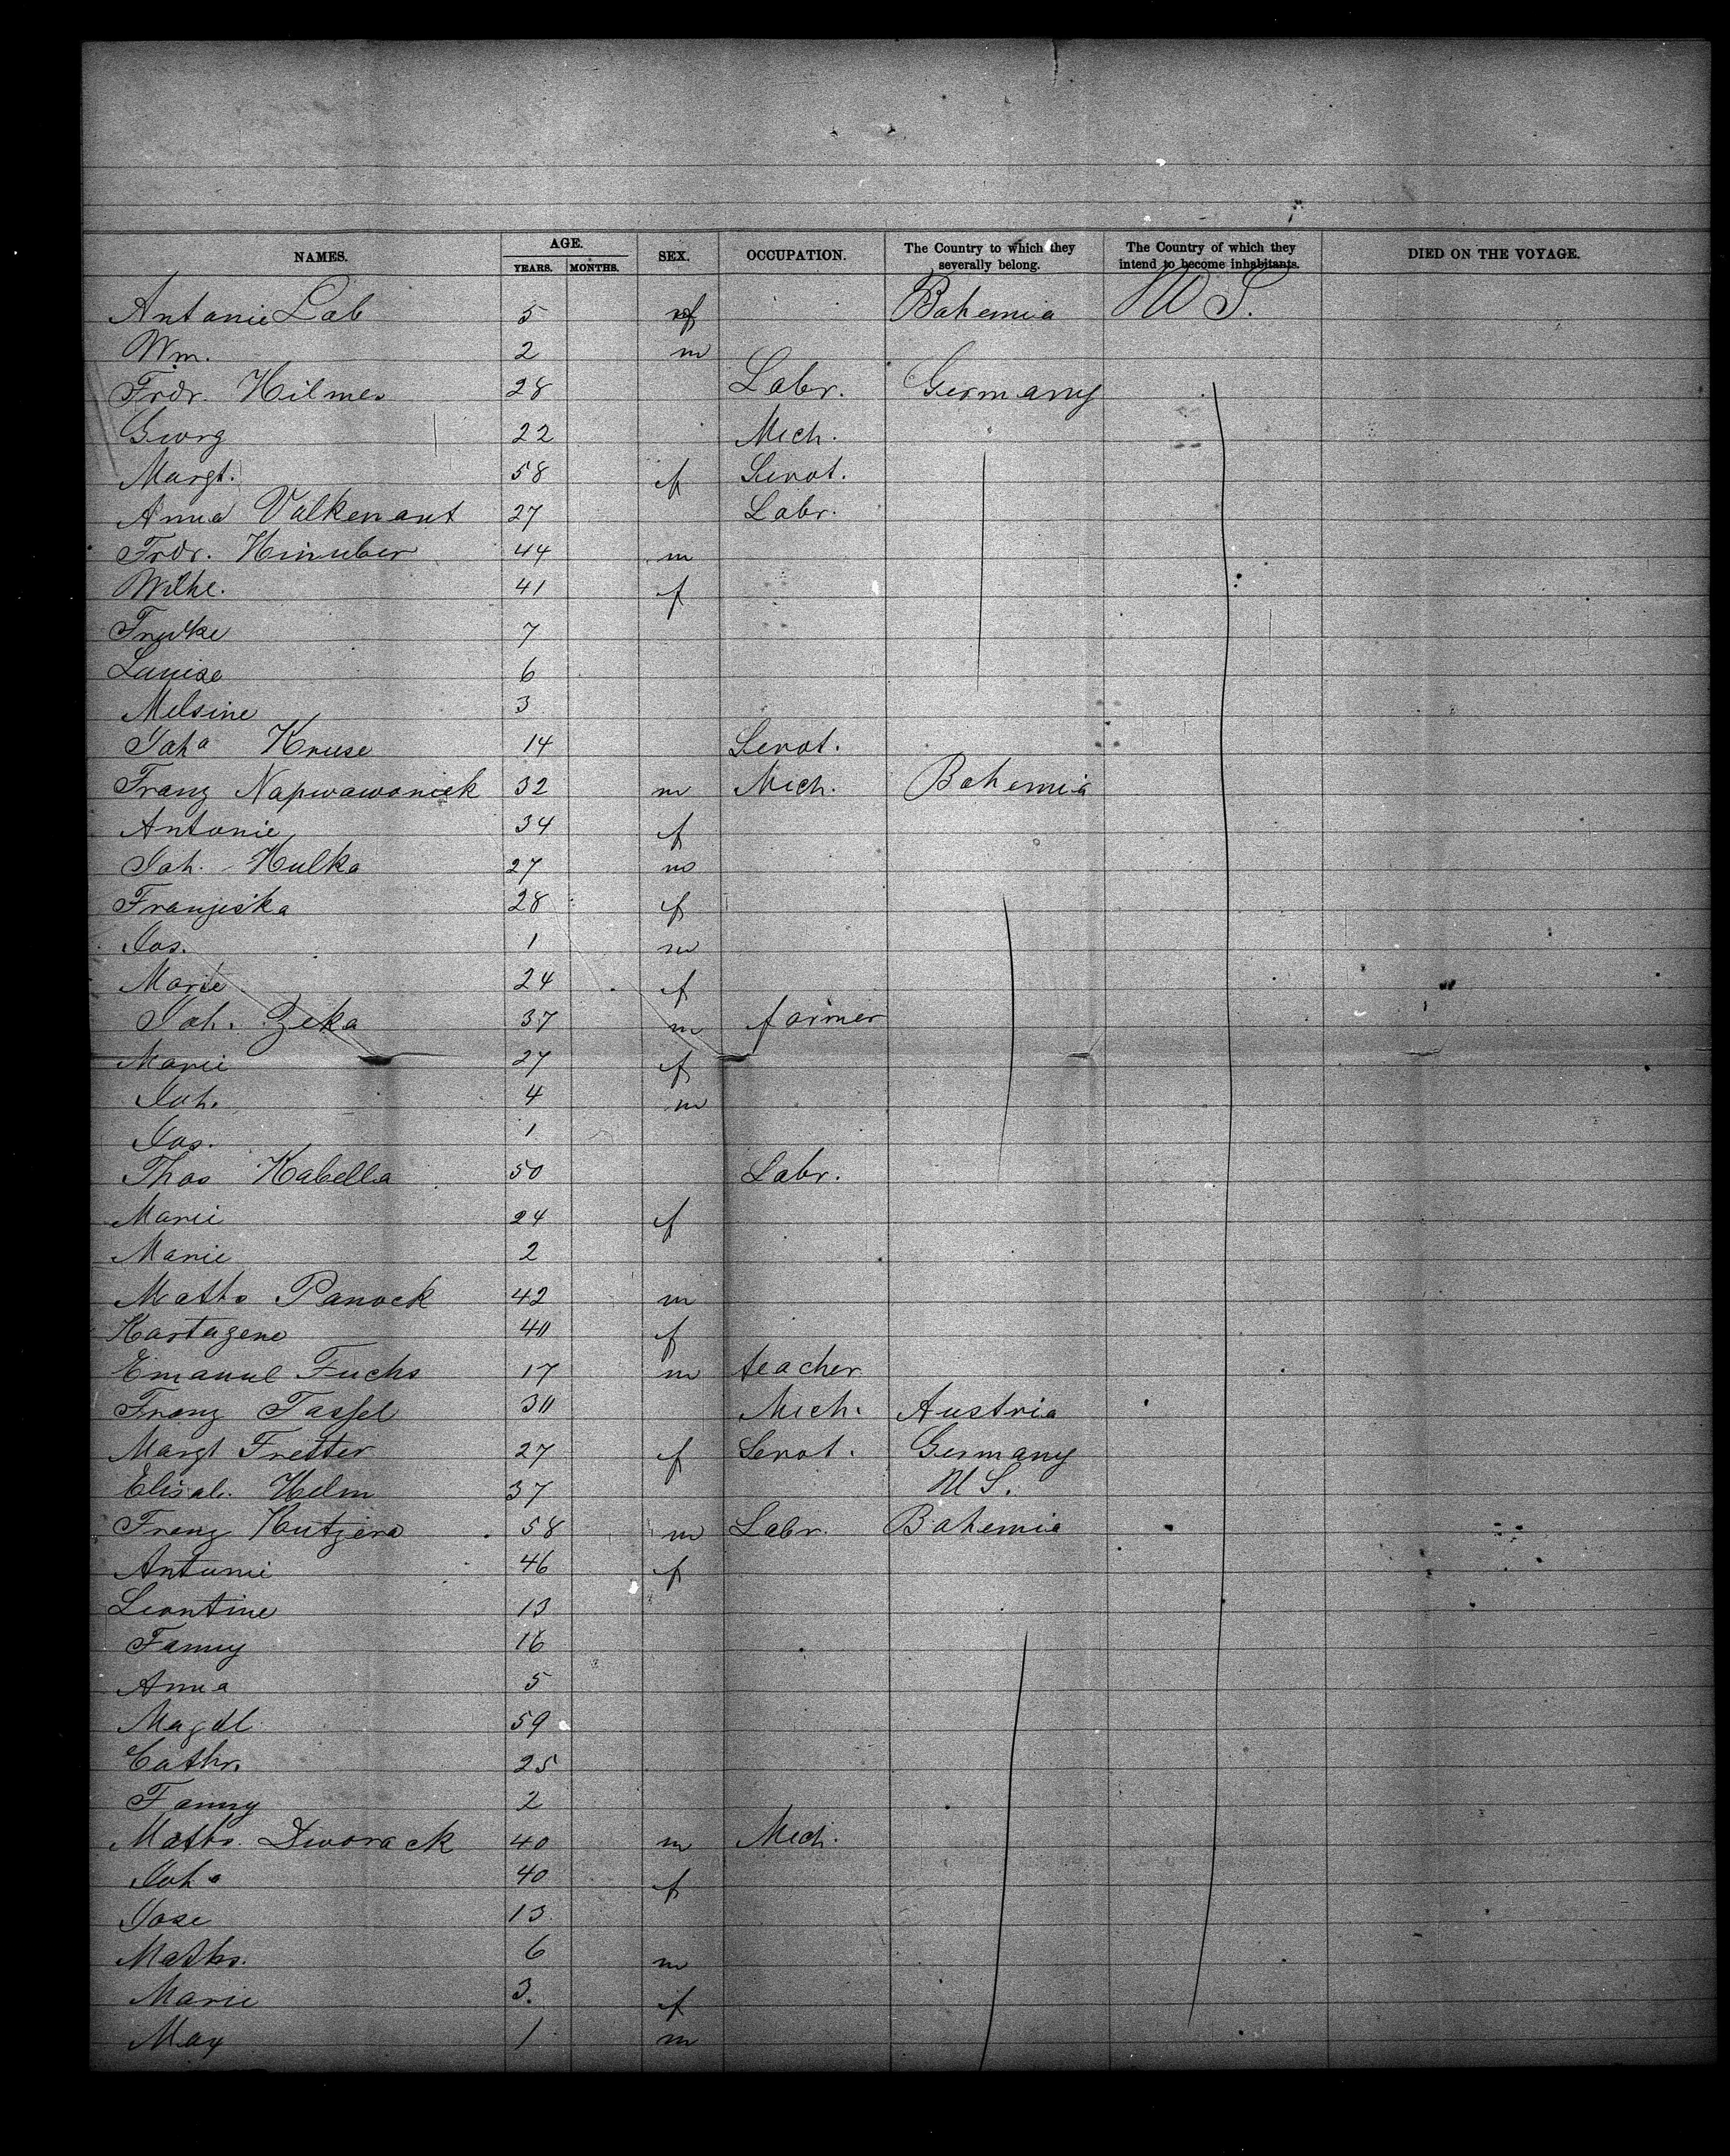 NAMES. AGE. YEARS. MONTHS. SEX. OCCUPATION. The Country to which they severally belong. The Country of which they intend to become inhabitants. DIED ON THE VOYAGE.
Antonie Lab 5 f Bohemia U S.
Wm. 2 m
Frdr. Hilmer 28 Labr. Germany
Georg 22 Mech.
Margt. 58 f Servt.
Anna Valkenant 27 Labr.
Frdr. Hinuber 44 m
Wilhe. 41 f
7
Louise 6
Melsine 3
Joha Kruse 14 Servt.
Franz Napwawanick 32 m Mech. Bohemia
Antonie 34 f
Joh. Hulka 27 m
Franziska 28 f
Jos. 1 m
Marie 24 f
Joh. Zeka 37 m farmer
Marie 27 f
Joh. 4 m
Jos. 1
Thos Kabella 50 Labr.
Marie 24 f
Marie 2
Matts Panock 42 m
40 f
Emanuel Fuchs 17 m teacher
Franz Tassel 30 Mech. Austria
Margt Fretter 27 f Servt. Germany
Elisab. Helm 37 U S.
Franz Hutzera 58 m Labr. Bohemia
Antonie 46 f
Leontine 13
Fanny 16
Anna 5
Magdl 59
Cathr. 25
Fanny 2
Matts. Dworack 40 m Mech.
Joha 40 f
Jose 13
Matts. 6 m
Marie 3. f
Max 1 m